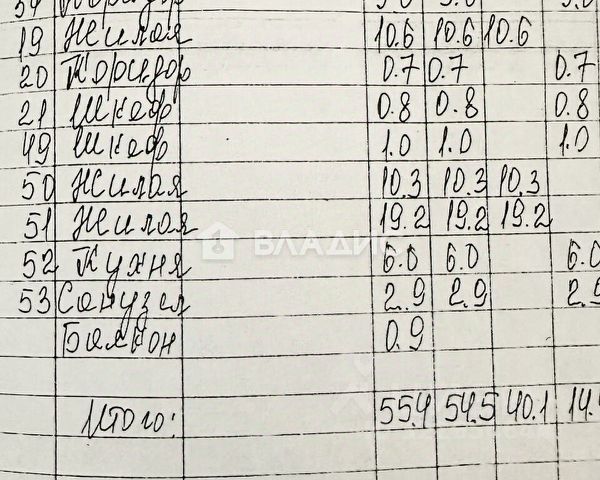 54 Коридор 3.0 3.0 3.0
19 Жилая 10.6 10.6 10.6
20 Коридор 0.7 0.7 0.7
21 Шкаф 0.8 0.8 0.8
49 Шкаф 1.0 1.0 1.0
50 Жилая 10.3 10.3 10.3
51 Жилая 19.2 19.2 19.2
ВЛАДИС
52 Кухня 6.0 6.0 6.0
53 Санузел 2.9 2.9 2.9
Балкон 0.9
Итого: 55.4 54.5 40.1 14.